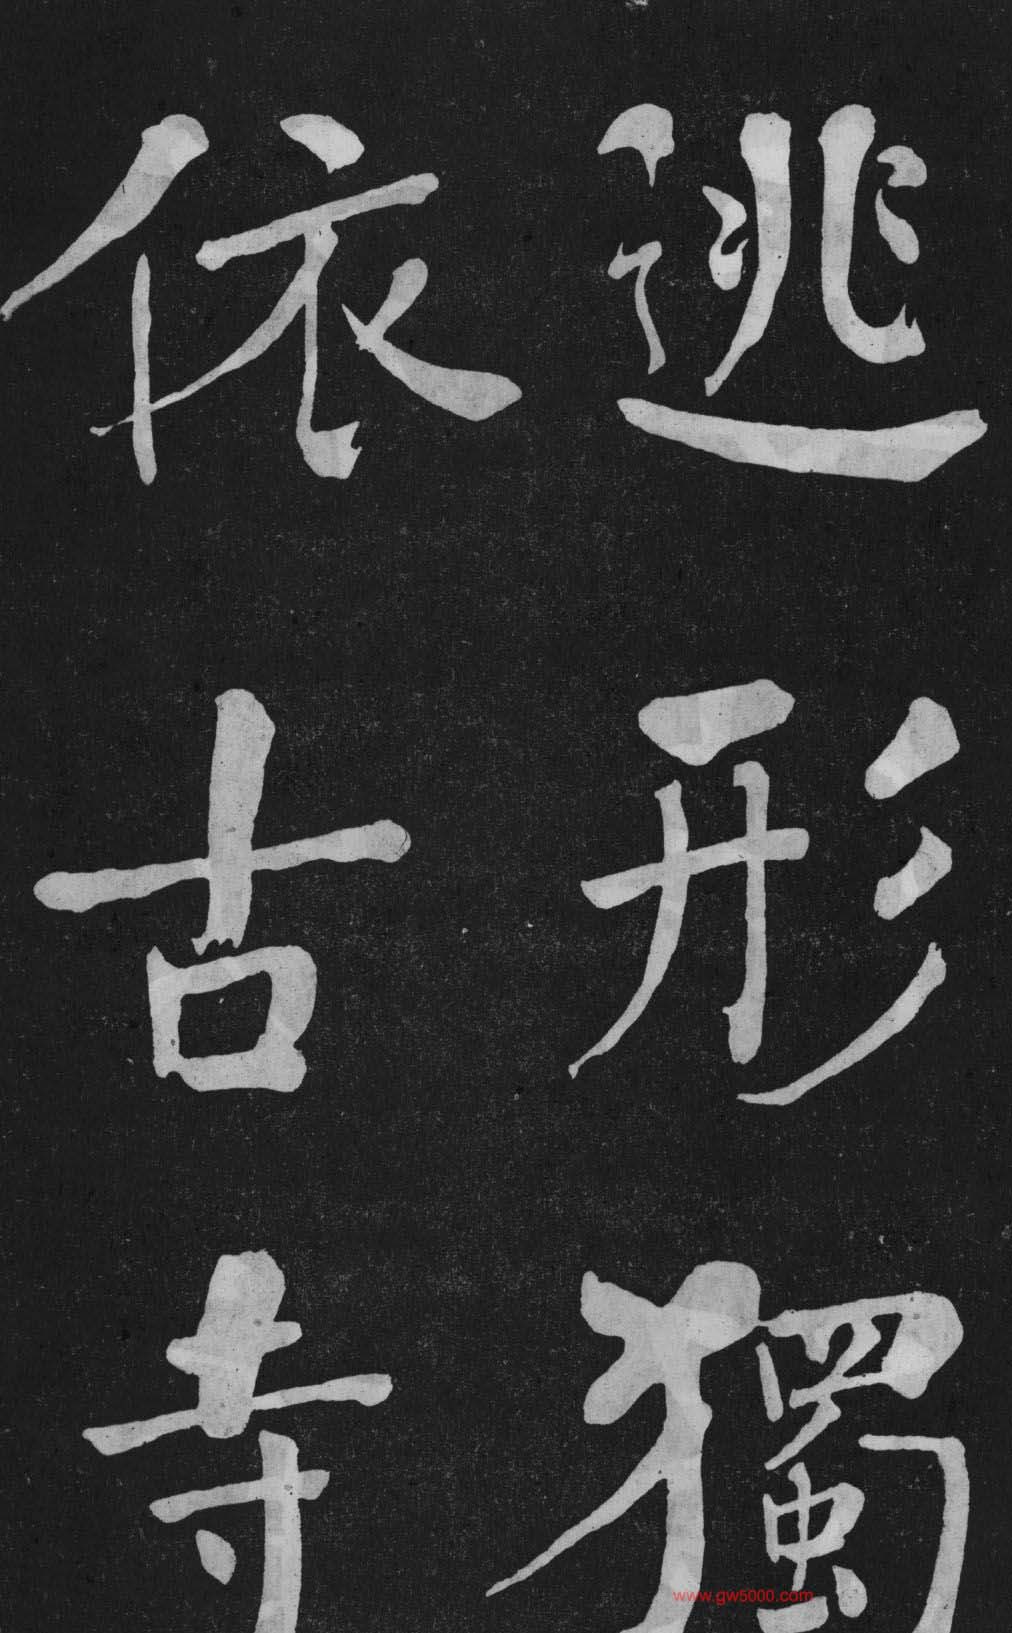 逃形獨
依古寺
www.gw5000.com